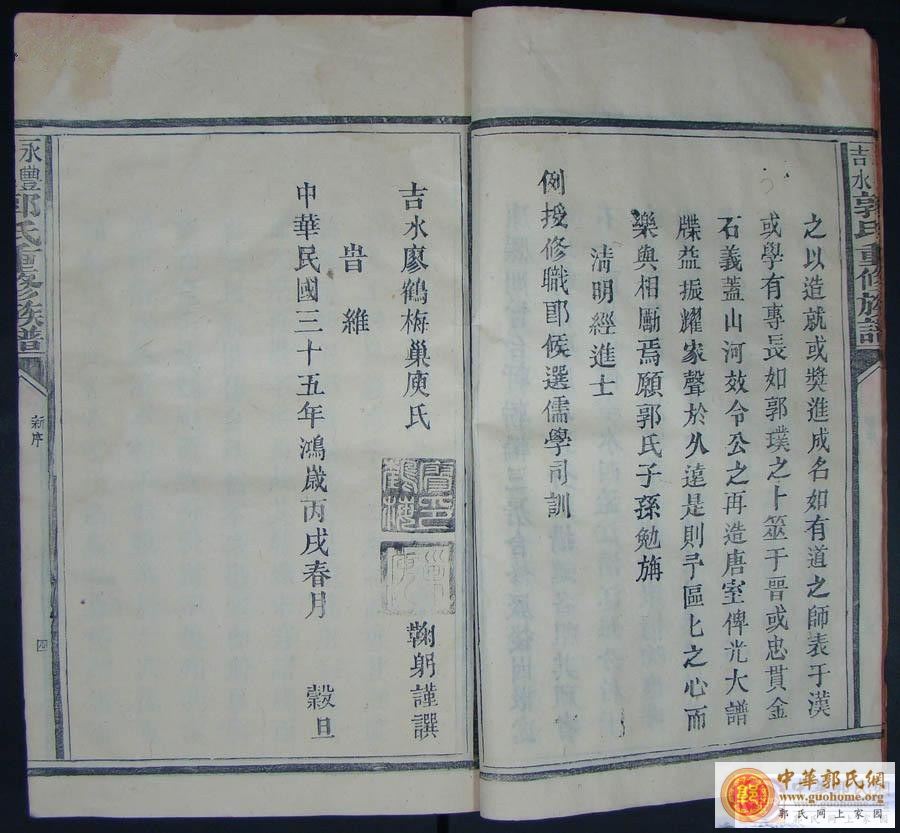 吉水郭氏重修族譜
之以造就或獎進成名如有道之師表于漢
或學有專長如郭璞之卜筮于晉或忠貫金
石義蓋山河效令公之再造唐室俾光大譜
牒益振耀家聲於久遠是則予區匕之心而
樂與相勵焉願郭氏子孫勉旃
清明經進士
例授修職郎候選儒學司訓
吉水廖鶴梅巢庾氏
鞠躬謹譔
旹維
中華民國三十五年鴻歲丙戌春月
穀旦
永豐郭氏重修族譜
新序
四
中華郭氏網
www.guohome.org
郭氏网上家园